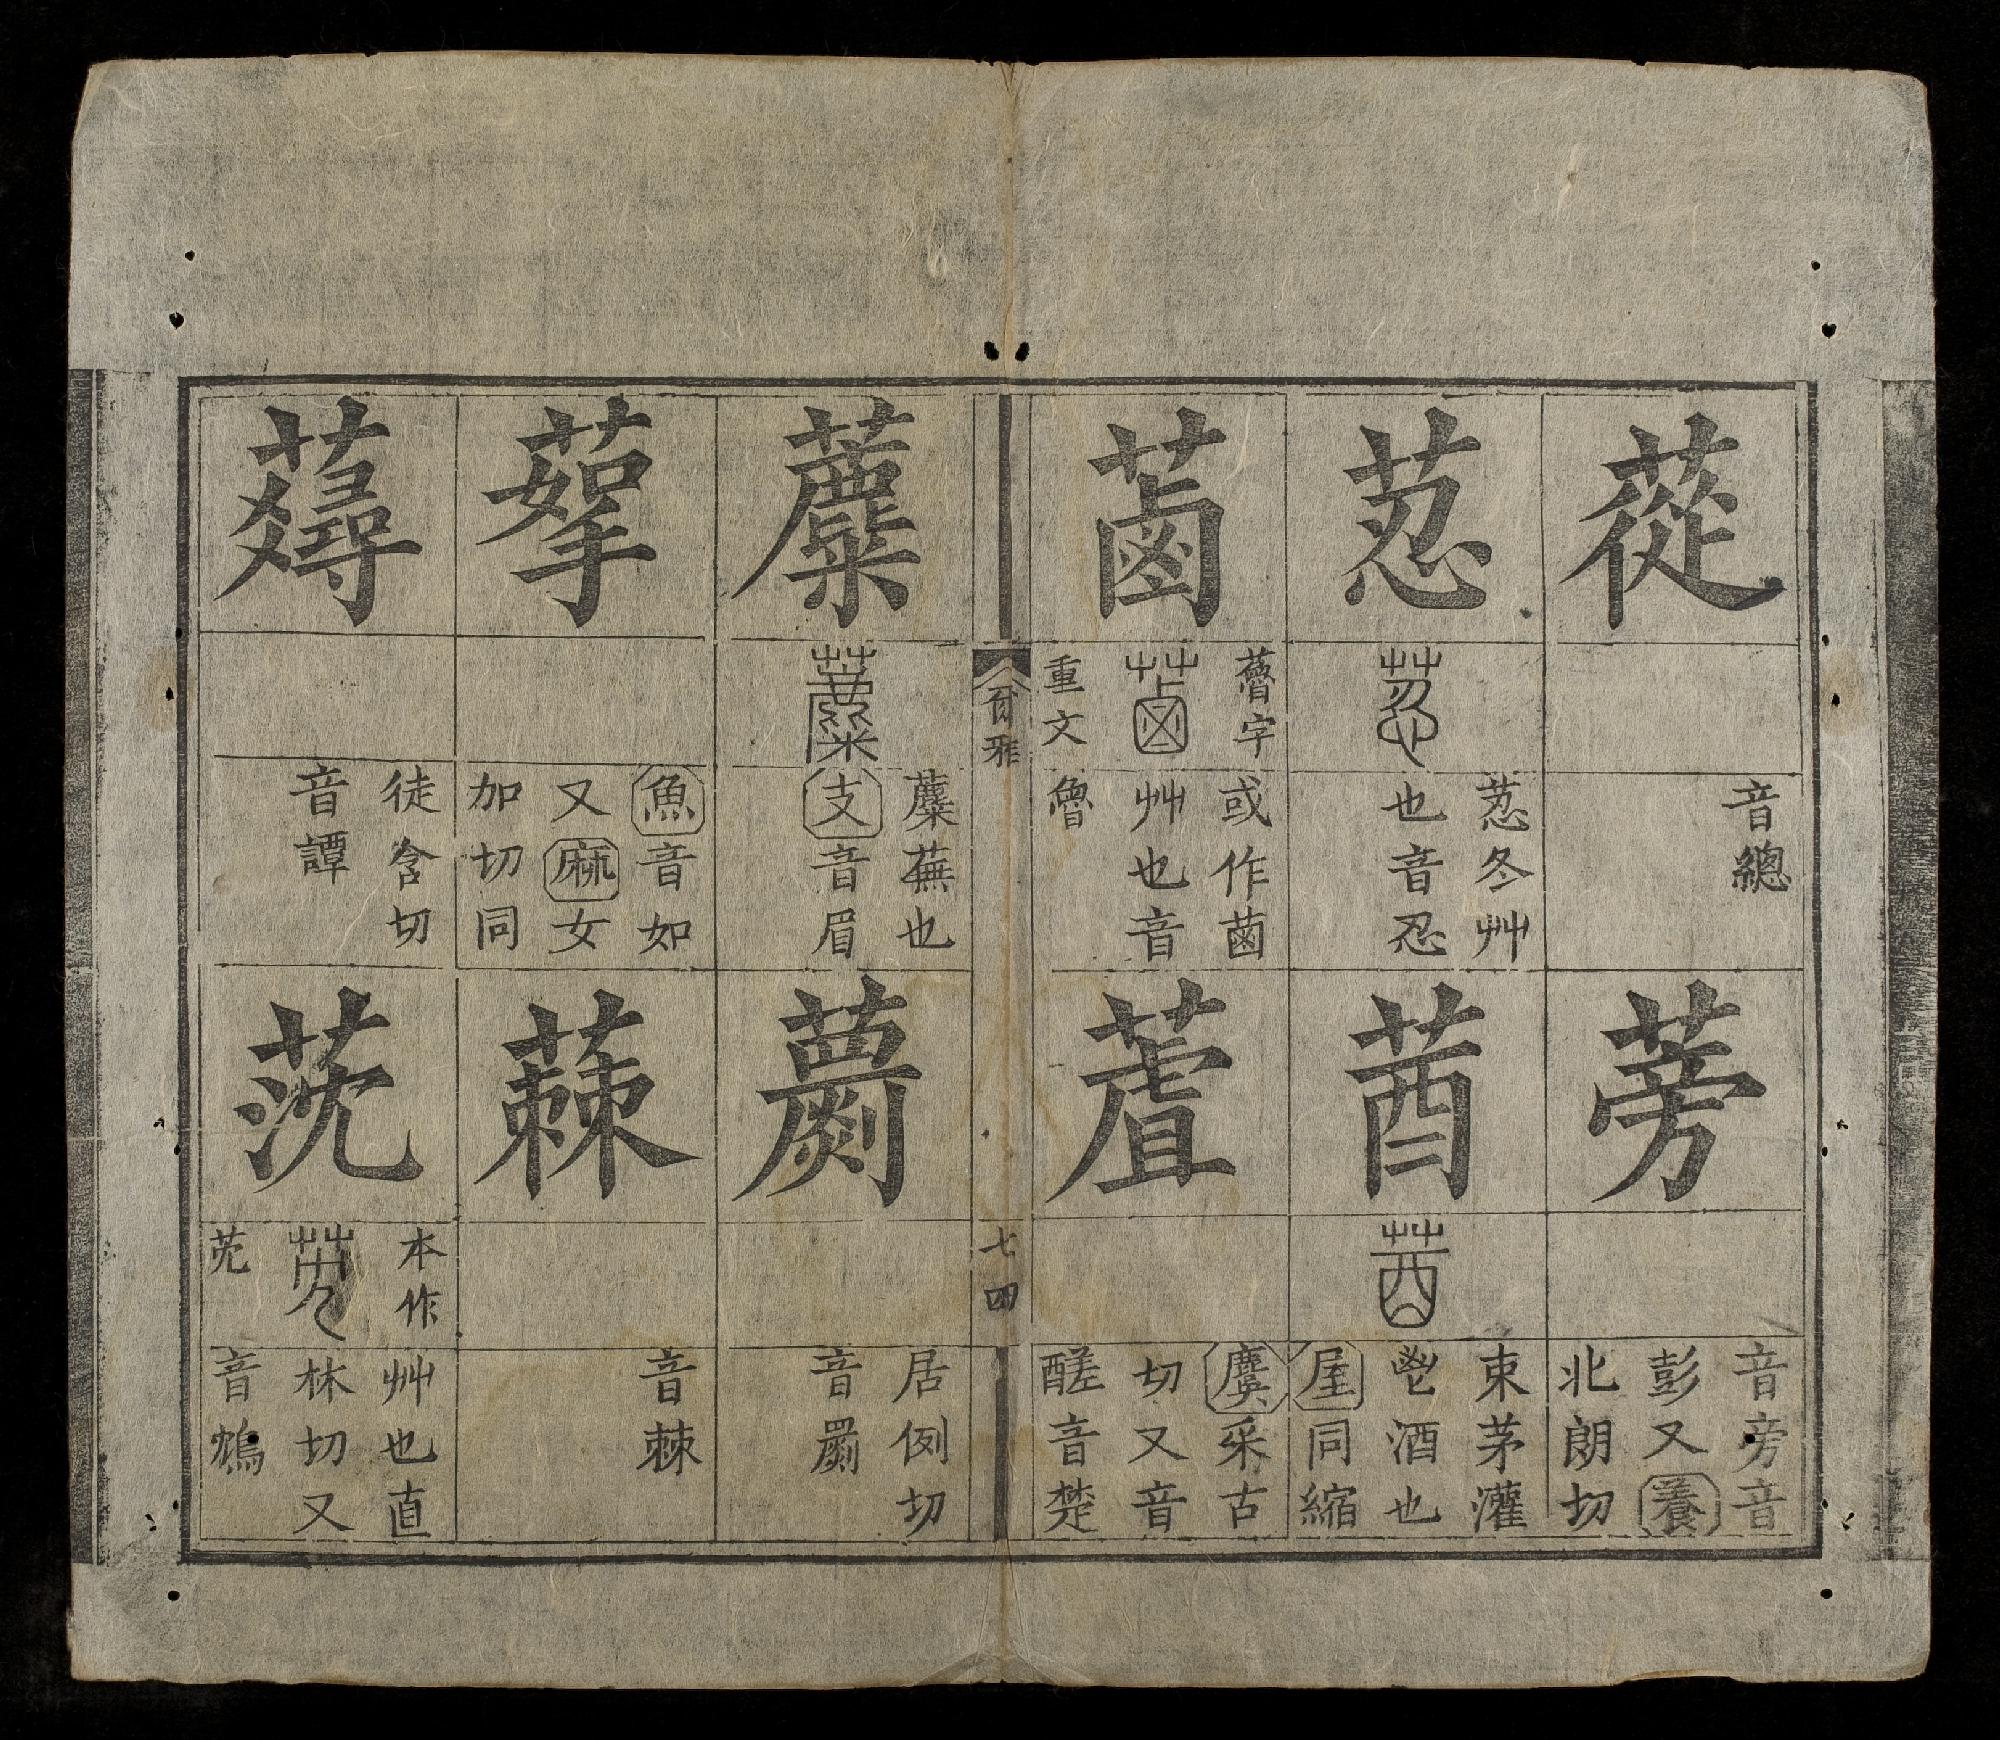 蓯
音總
蒡
音旁音
彭又養
北朗切
荵
荵冬艸
也音忍
莤
束茅灌
鬯酒也
屋同縮
蓾
蘑字
重文
或作蓾
艸也音
魯
蒫
虞采古
切又音
醝音楚
爾雅
七四
蘪
蘪蕪也
支音眉
藅
居例切
音罽
蒘
魚音如
又麻女
加切同
蕀
音棘
蕁
徒含切
音譚
莐
本作
艽
艸也直
林切又
音鴆